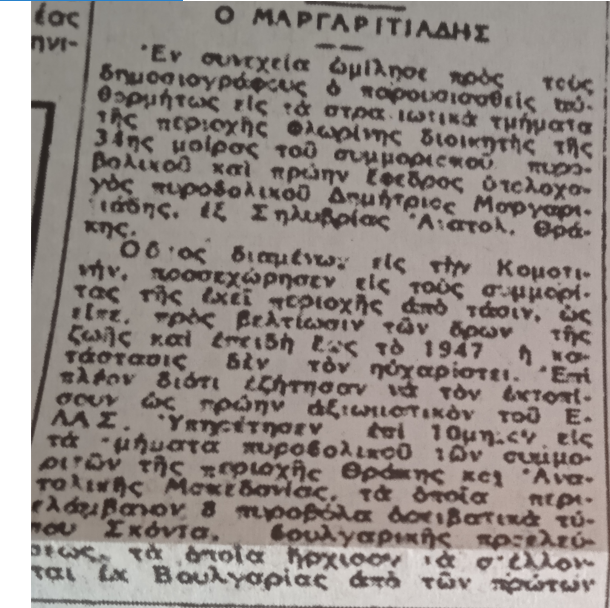 έας
ηνι-
Ο ΜΑΡΓΑΡΙΤΙΑΔΗΣ
Ἐν συνεχεία ὡμίλησε πρὸς τοὺς
δημοσιογράφους ὁ παρουσιασθεὶς αὐ-
θορμήτως εἰς τὰ στρατιωτικὰ τμήματα
τῆς περιοχῆς Φλωρίνης διοικητὴς τῆς
34ης μοίρας τοῦ συμμοριακοῦ πυρο-
βολικοῦ καὶ πρώην ἔφεδρος ὑπολοχα-
γὸς πυροβολικοῦ Δημήτριος Μαργαρι-
τιάδης, ἐξ Σηλυβρίας Ἀνατολ. Θρά-
κης.
Οὗτος διαμένων εἰς τὴν Κομοτι-
νήν, προσεχώρησεν εἰς τοὺς συμμορί-
τας τῆς ἐκεῖ περιοχῆς ἀπὸ τάσιν, ὡς
εἶπε, πρὸς βελτίωσιν τῶν ὅρων τῆς
ζωῆς καὶ ἐπειδὴ ἕως τὸ 1947 ἡ κα-
τάστασις δὲν τὸν ηὐχαρίστει. Ἐπὶ
πλέον διότι ἐζήτησαν νὰ τὸν ἐκτοπί-
σουν ὡς πρώην ἀξιωματικὸν τοῦ Ε-
ΛΑΣ. Ὑπηρέτησεν ἐπὶ 10μηνον εἰς
τὰ τμήματα πυροβολικοῦ τῶν συμμο-
ριτῶν τῆς περιοχῆς Θράκης καὶ Ἀνα-
τολικῆς Μακεδονίας, τὰ ὁποῖα περι-
ελάμβανον 8 πυροβόλα ὀρειβατικὰ τύ-
που Σκόντα, βουλγαρικῆς προελεύ-
σεως, τὰ ὁποῖα ἤρχισαν νὰ στέλλων-
ται ἐκ Βουλγαρίας ἀπὸ τῶν πρώτων